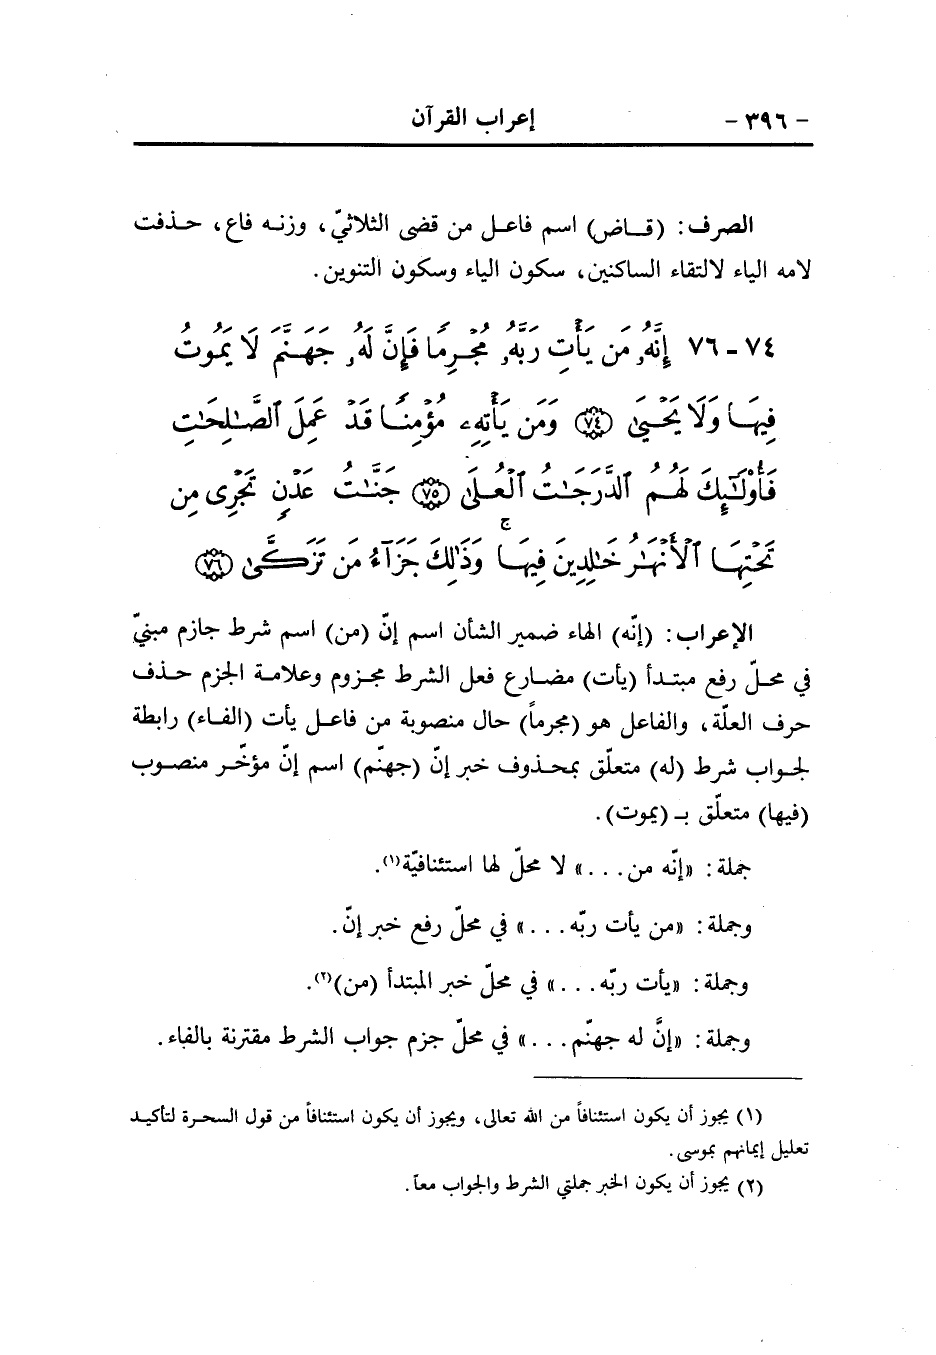 - ٣٩٦ - إعراب القرآن
الصرف: (قاض) اسم فاعل من قضى الثلاثيّ، وزنه فاع، حذفت
لامه الياء لالتقاء الساكنين، سكون الياء وسكون التنوين.
٧٤ - ٧٦ إِنَّهُۥ مَن يَأْتِ رَبَّهُۥ مُجْرِمًا فَإِنَّ لَهُۥ جَهَنَّمَ لَا يَمُوتُ
فِيهَا وَلَا يَحْيَىٰ ﴿٧٤﴾ وَمَن يَأْتِهِۦ مُؤْمِنًا قَدْ عَمِلَ ٱلصَّٰلِحَٰتِ
فَأُو۟لَٰٓئِكَ لَهُمُ ٱلدَّرَجَٰتُ ٱلْعُلَىٰ ﴿٧٥﴾ جَنَّٰتُ عَدْنٍ تَجْرِى مِن
تَحْتِهَا ٱلْأَنْهَٰرُ خَٰلِدِينَ فِيهَا ۚ وَذَٰلِكَ جَزَآءُ مَن تَزَكَّىٰ ﴿٧٦﴾
الإعراب: (إنّه) الهاء ضمير الشأن اسم إنّ (من) اسم شرط جازم مبنيّ
في محلّ رفع مبتدأ (يأت) مضارع فعل الشرط مجزوم وعلامة الجزم حذف
حرف العلّة، والفاعل هو (مجرماً) حال منصوبة من فاعل يأت (الفاء) رابطة
لجواب شرط (له) متعلّق بمحذوف خبر إنّ (جهنّم) اسم إنّ مؤخّر منصوب
(فيها) متعلّق بـ (يموت).
جملة: «إنّه من...» لا محلّ لها استئنافيّة(١).
وجملة: «من يأت ربّه...» في محلّ رفع خبر إنّ.
وجملة: «يأت ربّه...» في محلّ خبر المبتدأ (من)(٢).
وجملة: «إنَّ له جهنّم...» في محلّ جزم جواب الشرط مقترنة بالفاء.
(١) يجوز أن يكون استئنافاً من الله تعالى، ويجوز أن يكون استئنافاً من قول السحرة لتأكيد
تعليل إيمانهم بموسى.
(٢) يجوز أن يكون الخبر جملتي الشرط والجواب معاً.